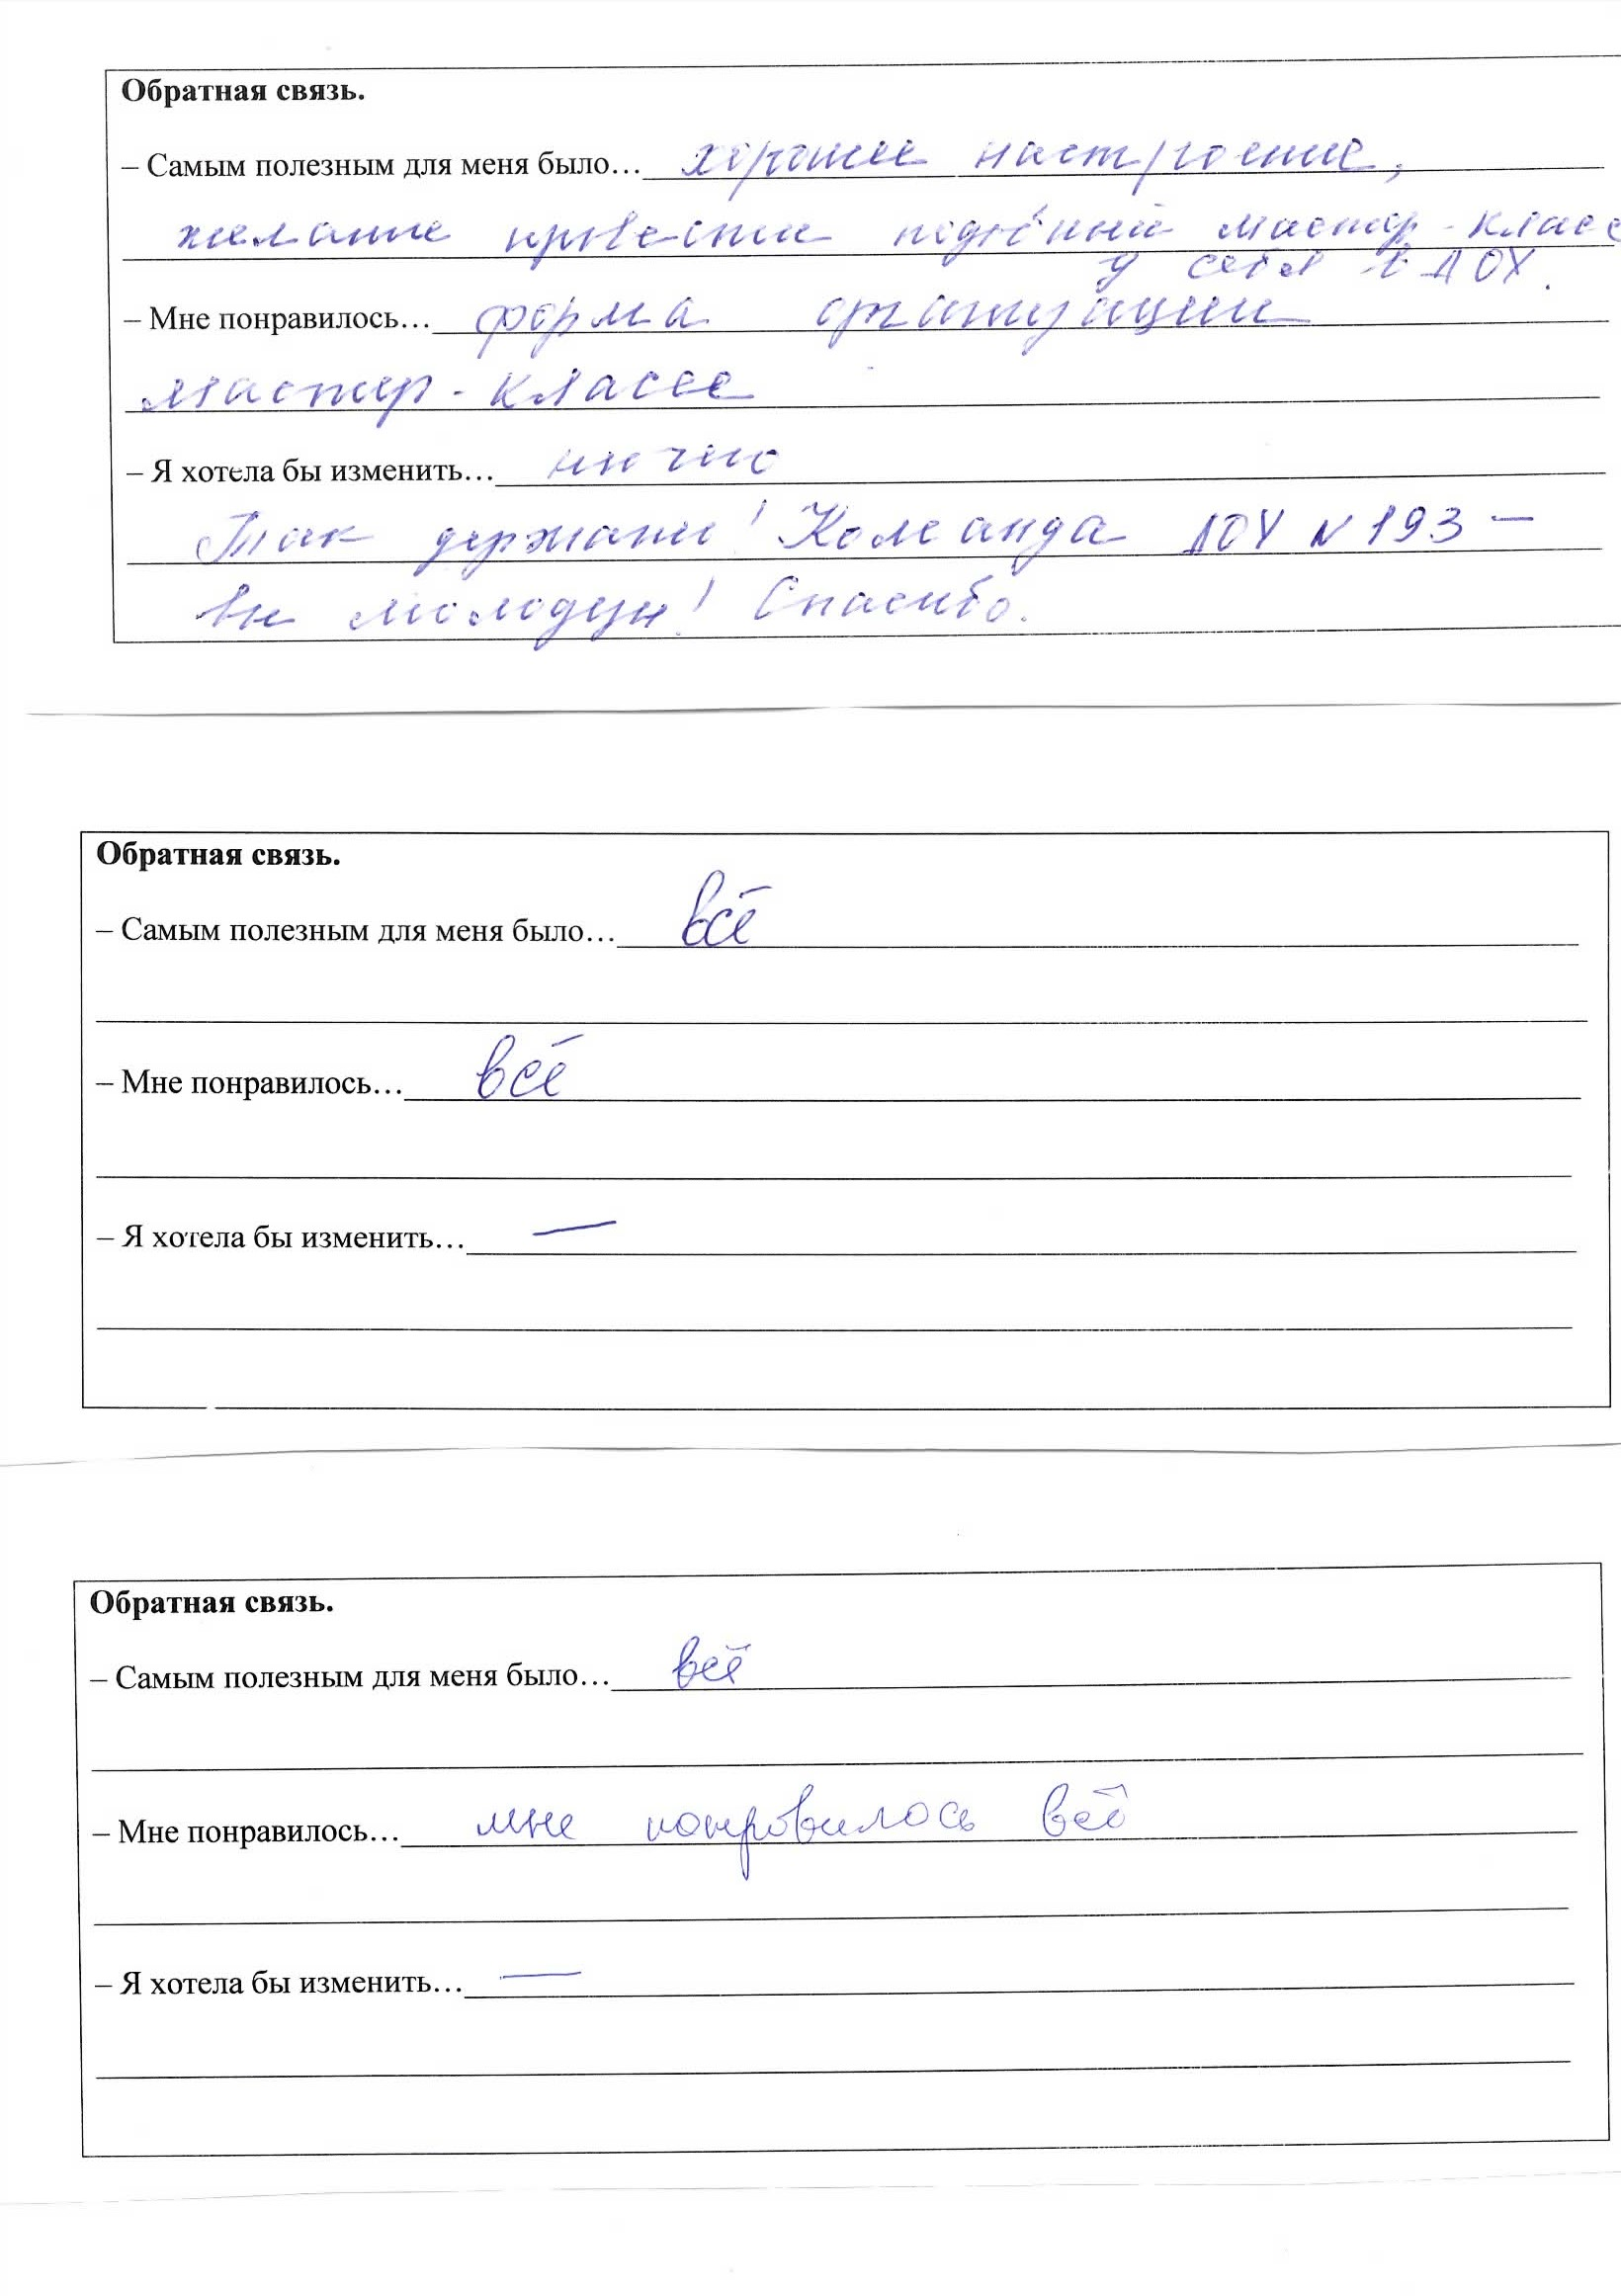 Обратная связь.
– Самым полезным для меня было... хорошее настроение,
желание провести подобный мастер-класс
у себя в ДОУ.
– Мне понравилось... форма организации
мастер-класса
– Я хотела бы изменить... ничего
Так держать! Команда ДОУ N 193 –
вы молодцы! Спасибо.
Обратная связь.
– Самым полезным для меня было... всё
– Мне понравилось... всё
– Я хотела бы изменить... —
Обратная связь.
– Самым полезным для меня было... всё
– Мне понравилось... мне понравилось всё
– Я хотела бы изменить... —